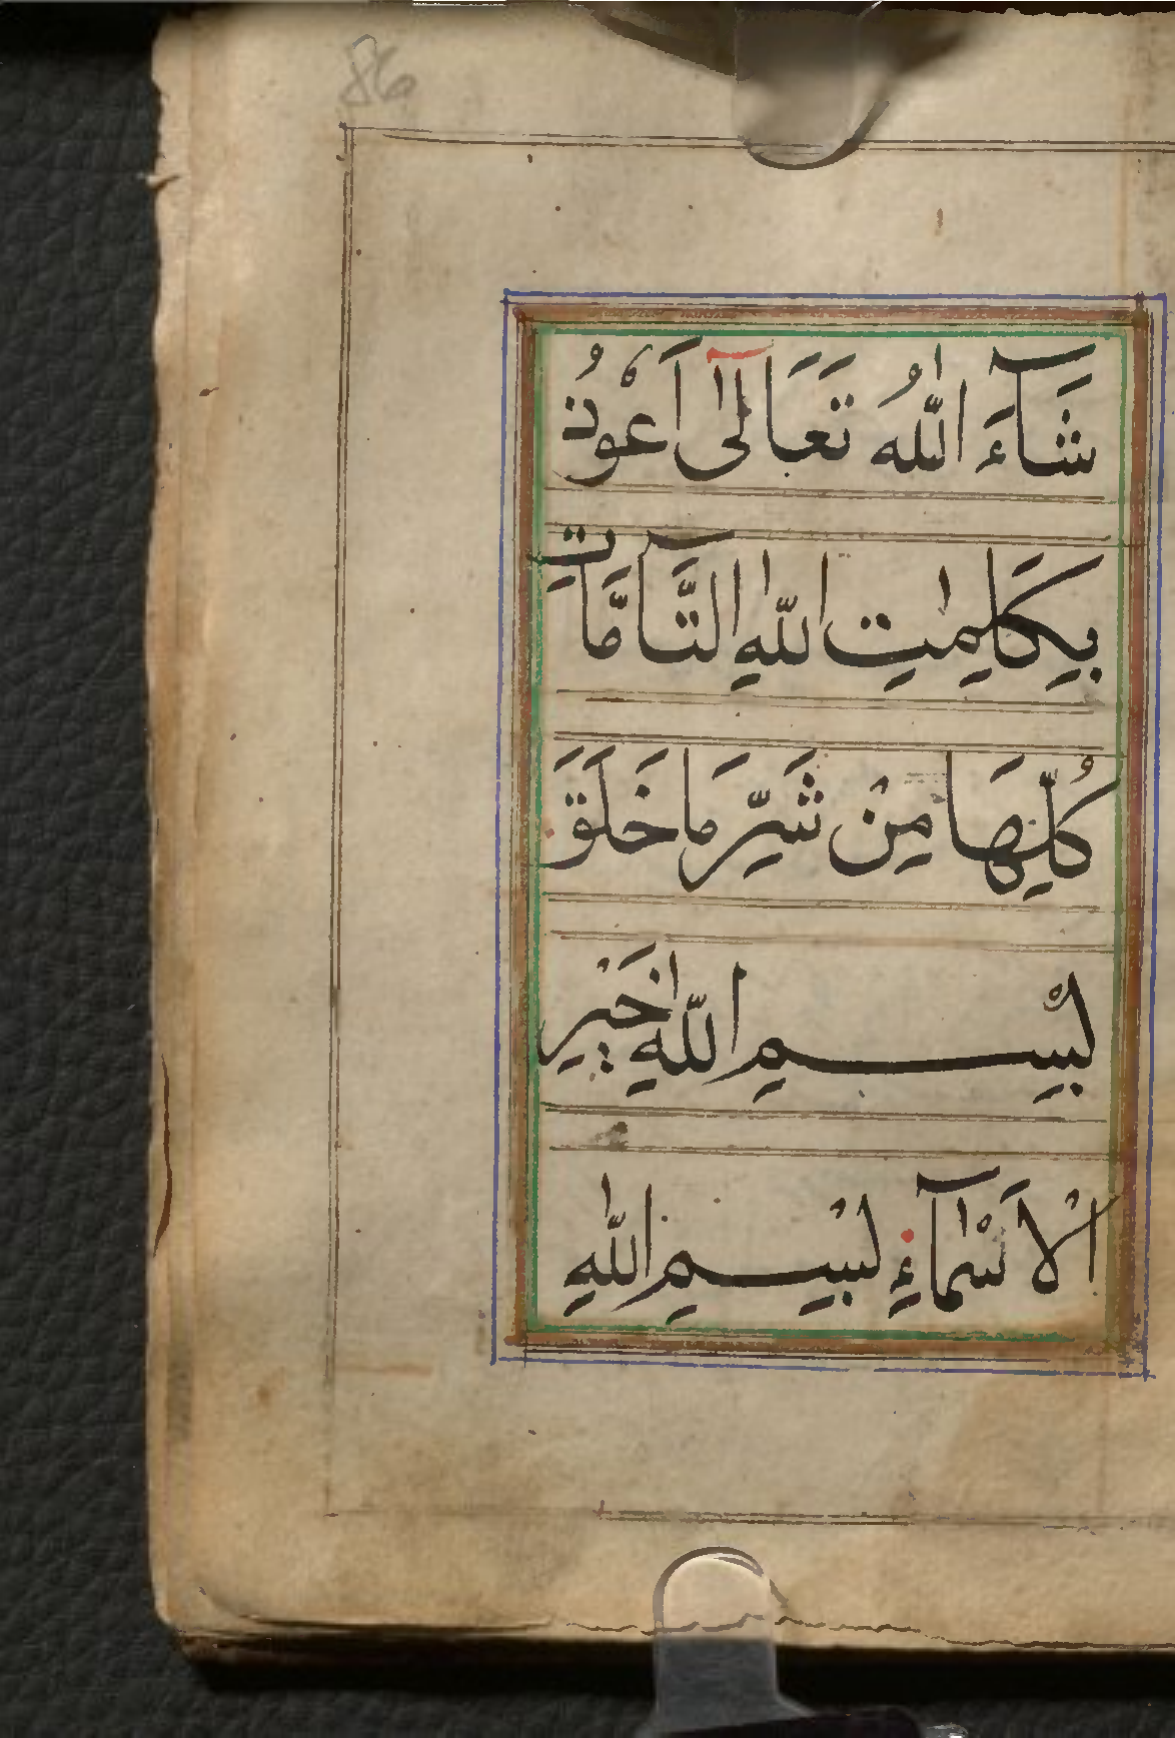 86
شَآءَ اللّٰهُ تَعَالٰٓى اَعُوْذُ
بِكَلِمٰتِ اللّٰهِ التَّآمَّاتِ
كُلِّهَا مِنْ شَرِّ مَا خَلَقَ
بِسْمِ اللّٰهِ خَيْرِ
الْاَسْمَآءِ بِسْمِ اللّٰهِ